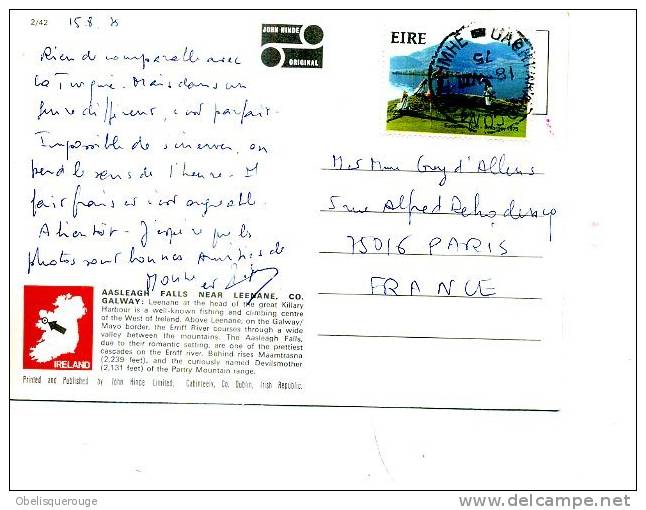 2/42
15.8.
JOHN HINDE
ORIGINAL
EIRE
Rien de comparable avec
la Turquie. Mais dans un
genre différent, c'est parfait.
Impossible de s'énerver, on
perd le sens de l'heure. Il
fait frais et c'est agréable.
A bientôt. J'espère que les
photos sont bonnes Amitiés de
et
Mr et Mme Guy d'Allens
5 rue Alfred
75016 PARIS
FRANCE
AASLEAGH FALLS NEAR LEENANE, CO.
GALWAY: Leenane at the head of the great Killary
Harbour is a well-known fishing and climbing centre
of the West of Ireland. Above Leenane, on the Galway/
Mayo border, the Erriff River courses through a wide
valley between the mountains. The Aasleagh Falls,
due to their romantic setting, are one of the prettiest
cascades on the Erriff river. Behind rises Maamtrasna
(2,239 feet), and the curiously named Devilsmother
(2,131 feet) of the Partry Mountain range.
IRELAND
Printed and Published by John Hinde Limited, Cabinteely, Co. Dublin, Irish Republic.
Obelisquerouge
delcampe.net